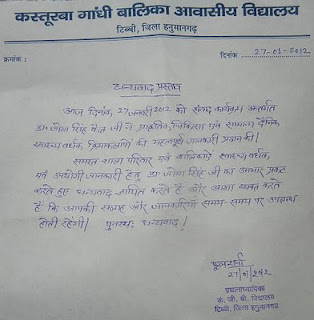 कस्तूरबा गांधी बालिका आवासीय विद्यालय
टिब्बी, जिला हनुमानगढ़
क्रमांक : दिनांक 27-01-2012
धन्यवाद प्रस्ताव
आज दिनांक 27 जनवरी 2012 को संवाद कार्यक्रम अन्तर्गत
डा. जोगा सिंह जी ने प्राकृतिक चिकित्सा एवं सामान्य दैनिक
स्वास्थ्य वर्धक क्रियाकलापों की महत्वपूर्ण जानकारी प्रदान की।
समस्त शाला परिवार एवं बालिकाऐं स्वास्थ्य वर्धक,
एवं उपयोगी जानकारी हेतु डा. जोगा सिंह जी का आभार प्रकट
करते हुए धन्यवाद ज्ञापित करते है और आशा व्यक्त करते
है कि आपकी सलाह और जानकारियां समय-समय पर उपलब्ध
होती रहेंगी। पुनश्च: धन्यवाद!
27/1/2012
प्रधानाध्यापिका
क. गां. बा. विद्यालय
टिब्बी, जिला हनुमानगढ़